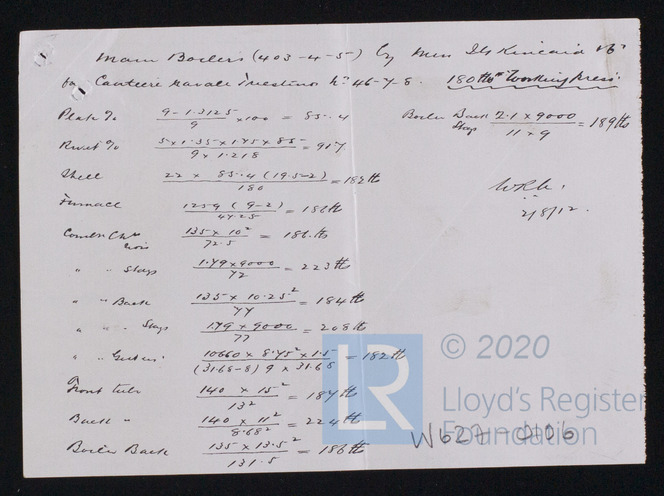 Main Boilers (403-4-5) by Mess J G Kincaid & Co
for Cantiere Navale Triestino No 46-7-8. 180 lbs Working Press.
Plate % (9 - 1.3125)/9 × 100 = 85.4
Rivet % (5 × 1.35 × 1.75 × 85)/(9 × 1.218) = 91.7
Shell (22 × 85.4 (19.5-2))/180 = 182 lb
Furnace (1259 (9-2))/47.25 = 186 lb
Comb Chr (135 × 10²)/72.5 = 186. lbs
" " Stays (1.79 × 9000)/72 = 223 lb
" " Back (135 × 10.25²)/77 = 184 lb
" " Stays (1.79 × 9000)/77 = 208 lb
" " Girders. (10660 × 8.75² × 1.5)/((31.68-8) 9 × 31.68) = 182 lb
Front tube (140 × 15²)/13² = 187 lb
Back " (140 × 11²)/8.68² = 224 lb
Boiler Back (135 × 13.5²)/131.5 = 186 lb
Boiler Back Stays (2.1 × 9000)/(11 × 9) = 189 lbs
2/8/12.
© 2020
LR
Lloyd's Register
Foundation
W627-0106